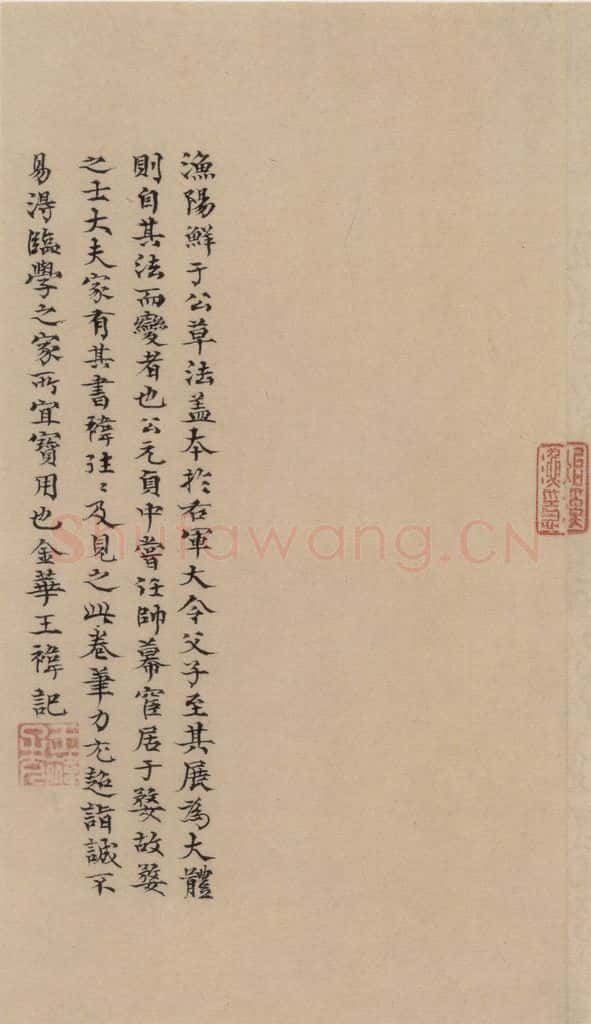 漁陽鮮于公草法盖本扵右軍大令父子至其展為大體
則自其法而變者也公元貞中嘗任帥幕宦居于婺故婺
之士大夫家有其書褘往〻及見之此卷筆力尤超詣誠不
易淂臨學之家所宜寶用也金華王褘記
Shufawang.CN